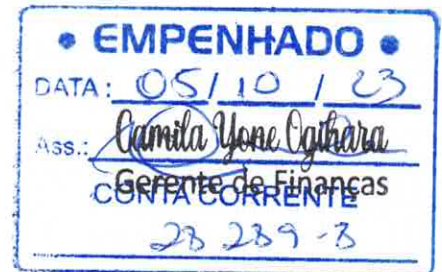 • EMPENHADO •
DATA: 05/10/23
Ass.: Camila Yone Ogihara
Gerente de Finanças
CONTA CORRENTE
28 289-8